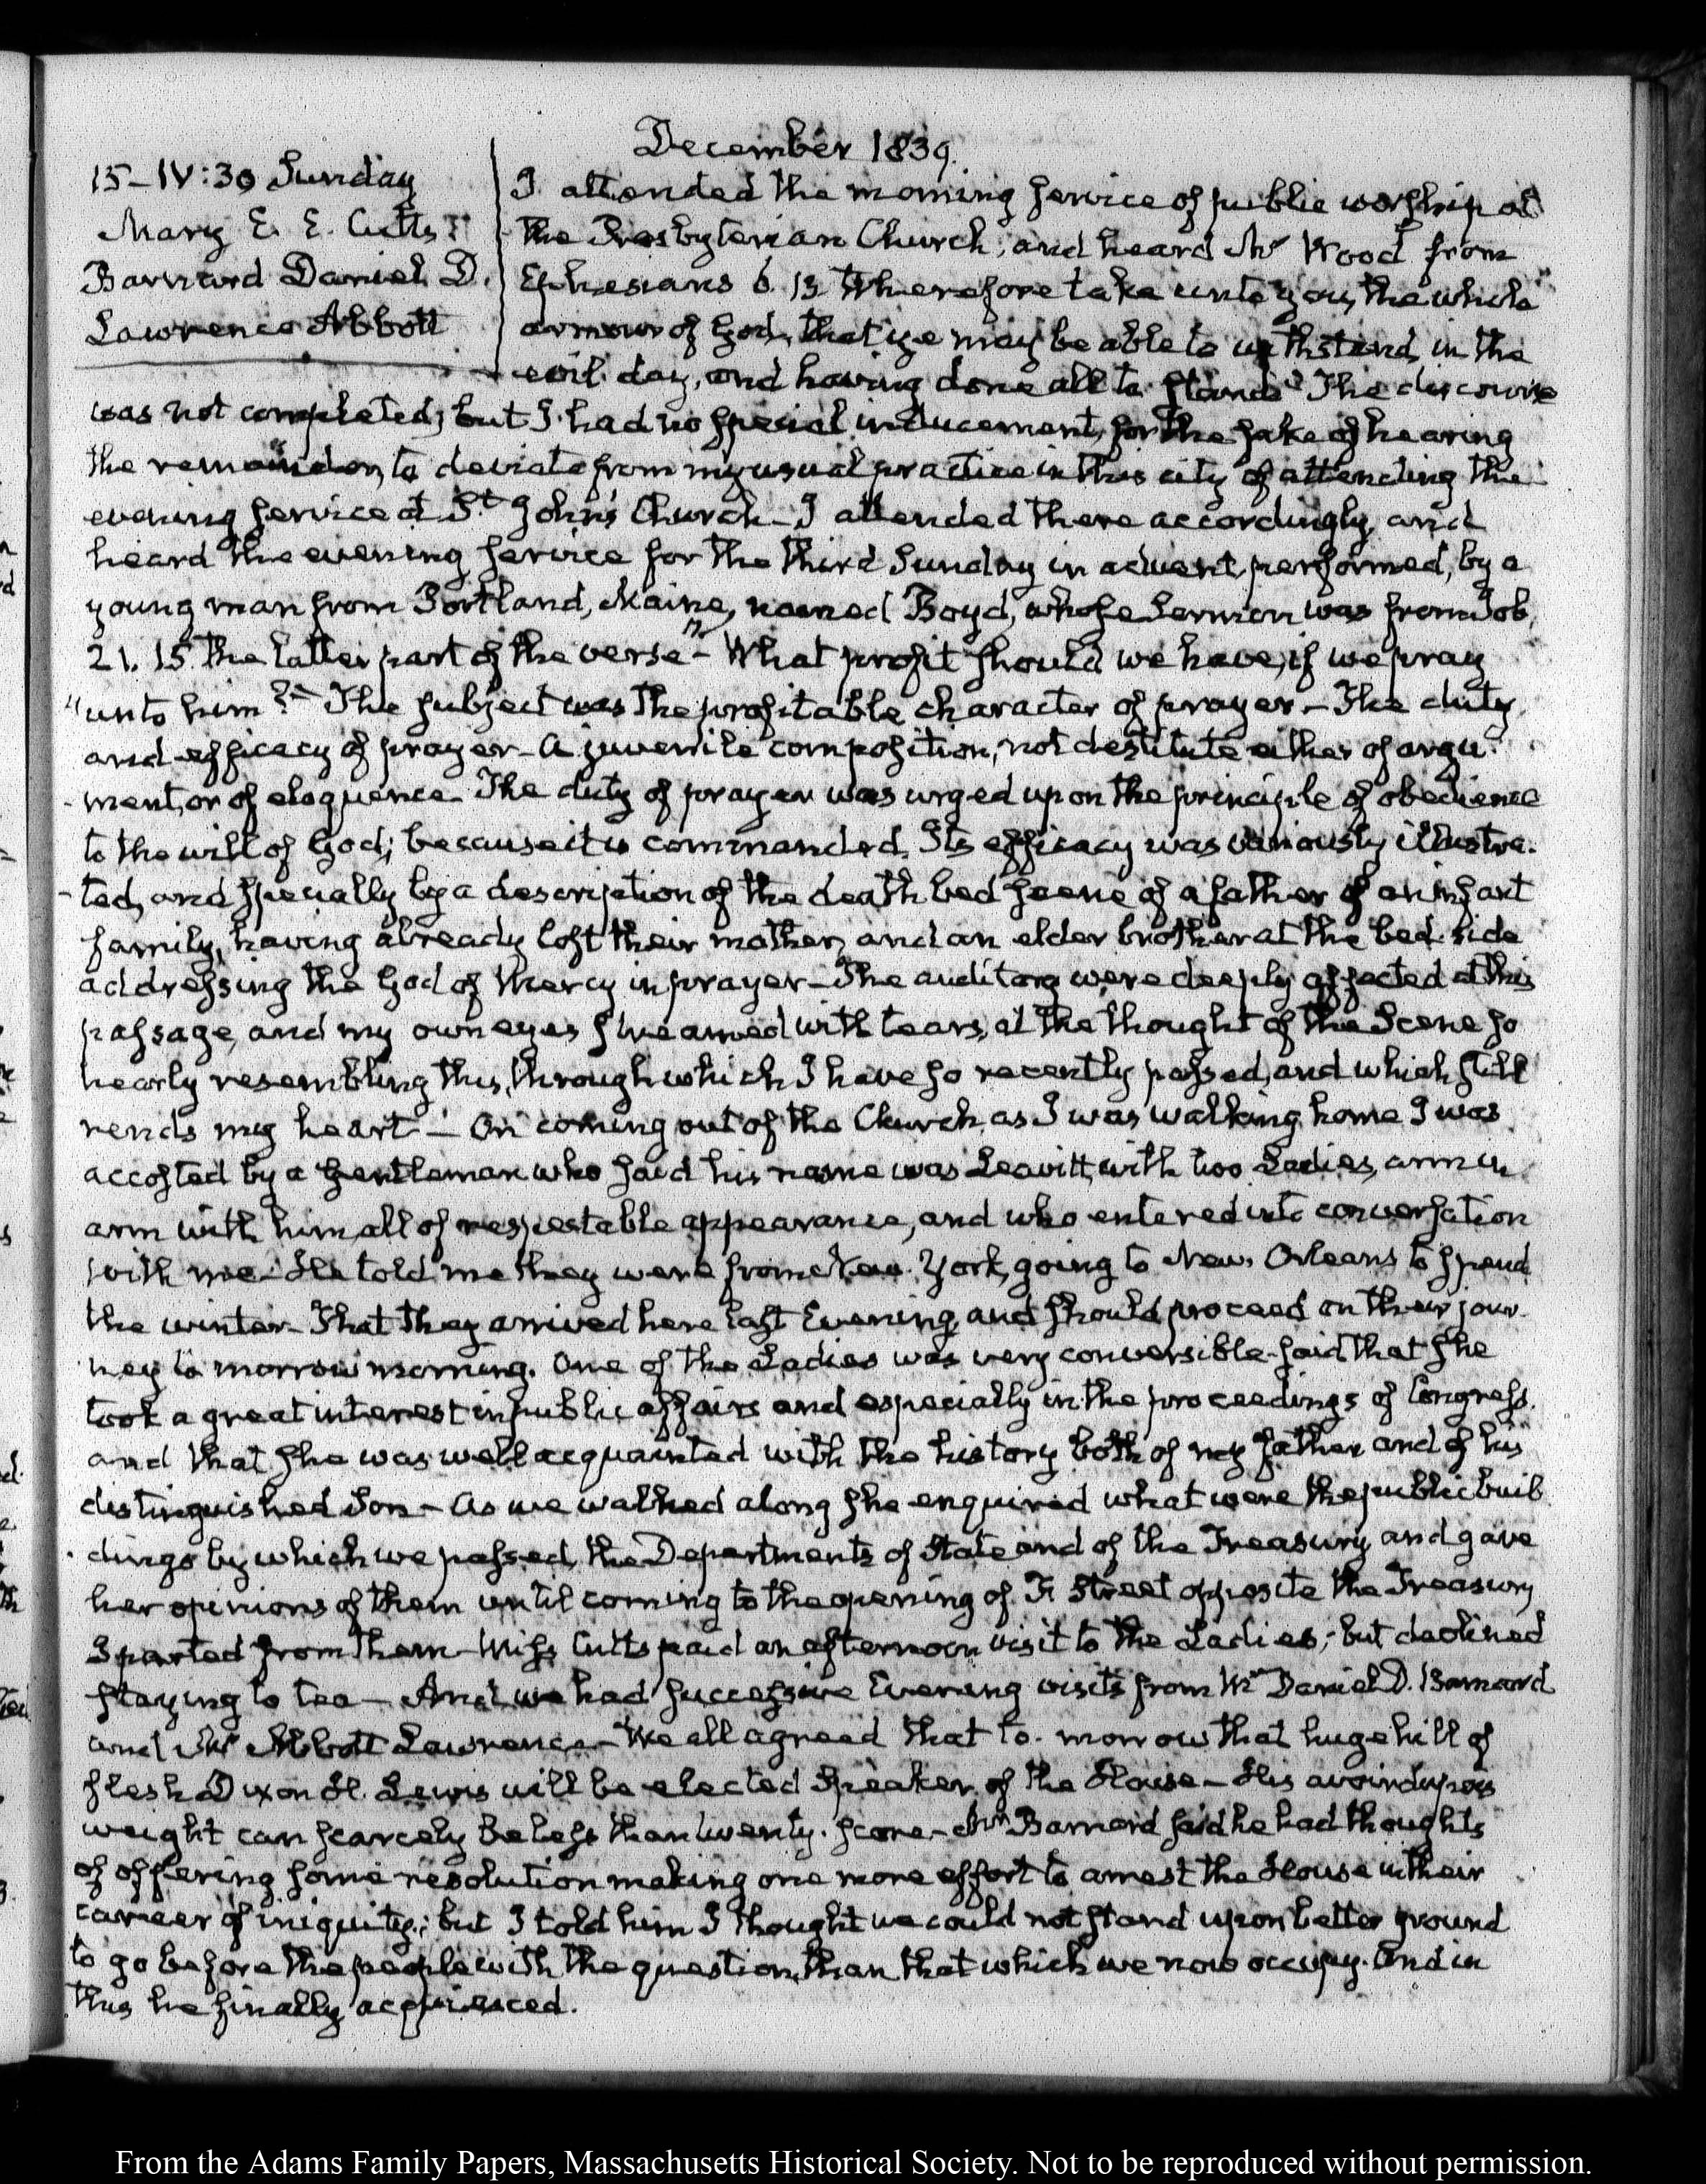 December 1839.
15 - IV:30 Sunday
Mary E. E. Cutts
Barnard Daniel D.
Lawrence Abbott
I attended the morning service of public worship at
the Presbyterian Church, and heard Mr Wood from
Ephesians 6. 13 Wherefore take unto you, the whole
armour of God, that ye may be able to withstand, in the
evil day, and having done all to stand" The discourse
was not completed; but I had no special inducement, for the sake of hearing
the remainder, to deviate from my usual practice in this city of attending the
evening service at St. John's Church - I attended there accordingly, and
heard the evening service for the third Sunday in advent, performed, by a
young man from Portland, Maine, named Boyd, whose Sermon was from Job,
21. 15 the latter part of the verse "- What profit should we have, if we pray
"unto him?" - The subject was the profitable character of prayer - The duty
and efficacy of prayer - A juvenile composition, not destitute either of argu-
-ment, or of eloquence - The duty of prayer was urged upon the principle of obedience
to the will of God; because it is commanded. Its efficacy was variously illustra-
-ted, and specially by a description of the death bed scene of a father of an infant
family, having already lost their mother, and an elder brother at the bed side
addressing the God of Mercy in prayer - The auditory were deeply affected at this
passage, and my own eyes streamed with tears, at the thought of the Scene so
nearly resembling this, through which I have so recently passed, and which still
rends my heart - On coming out of the Church, as I was walking home I was
accosted by a gentleman who said his name was Leavitt, with two Ladies, arm in
arm with him all of respectable appearance, and who entered into conversation
with me - He told me they were from New York, going to New Orleans to spend
the winter - That they arrived here last Evening, and should proceed on their jour-
ney to morrow morning. One of the Ladies was very conversible - said that she
took a great interest in public affairs and especially in the proceedings of Congress.
and that she was well acquainted with the history both of my father and of his
distinguished Son - As we walked along she enquired what were the public buil
-dings by which we passed, the Departments of State and of the Treasury and gave
her opinions of them until coming to the opening of F Street opposite the Treasury
I parted from them - Miss Cutts paid an afternoon visit to the Ladies; but declined
staying to tea - And we had successive Evening visits from Mr Daniel D. Barnard
and Mr Abbott Lawrence - We all agreed that to-morrow that huge hill of
flesh Dixon H. Lewis will be elected Speaker of the House - His avoirdupois
weight can scarcely be less than twenty-score - Mr Barnard said he had thoughts
of offering some resolution making one more effort to arrest the House in their
career of iniquity; but I told him I thought we could not stand upon better ground
to go before the people with the question, than that which we now occupy. And in
this he finally acquiesced.
From the Adams Family Papers, Massachusetts Historical Society. Not to be reproduced without permission.